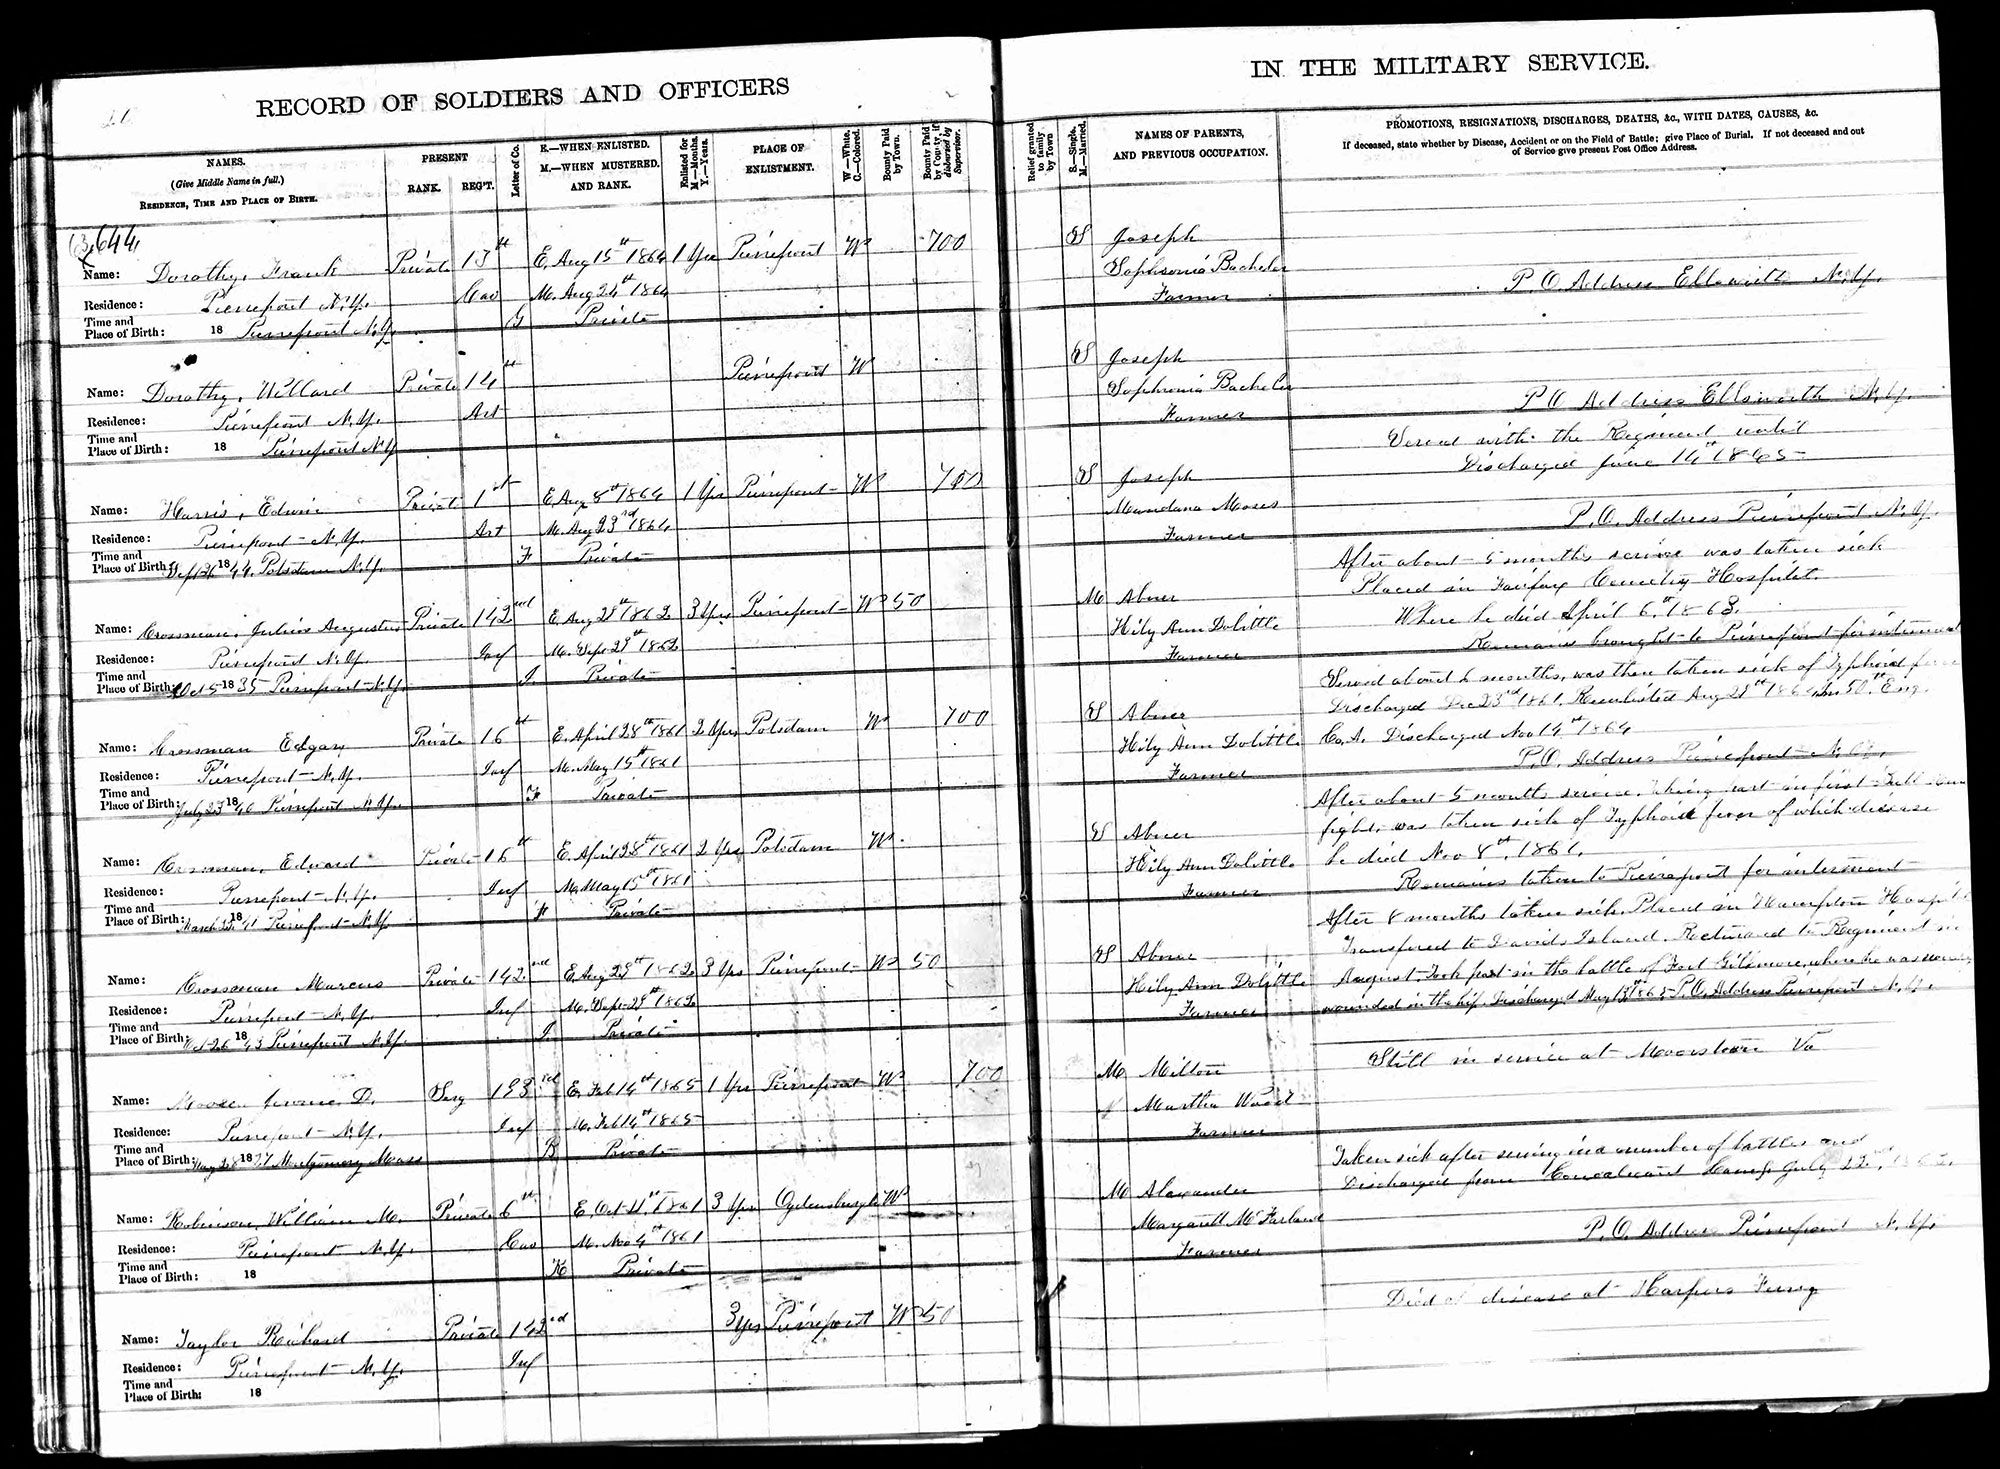 RECORD OF SOLDIERS AND OFFICERS
IN THE MILITARY SERVICE.
NAMES.
(Give Middle Name in full.)
RESIDENCE, TIME AND PLACE OF BIRTH.
PRESENT
RANK. REG'T.
Letter of Co.
E.—WHEN ENLISTED.
M.—WHEN MUSTERED.
AND RANK.
Enlisted for
M—Months.
Y.—Years.
PLACE OF
ENLISTMENT.
W—White.
C.—Colored.
Bounty Paid
by Town.
Bounty Paid
by County, if
disbursed by
Supervisor.
Relief granted
to family
by Town
S.—Single.
M.—Married.
NAMES OF PARENTS,
AND PREVIOUS OCCUPATION.
PROMOTIONS, RESIGNATIONS, DISCHARGES, DEATHS, &c., WITH DATES, CAUSES, &c.
If deceased, state whether by Disease, Accident or on the Field of Battle; give Place of Burial. If not deceased and out
of Service give present Post Office Address.
644
Name: Dorothy, Frank Private 13th E. Aug 15th 1864 1 Yrs Pierrepont W 700 S Joseph
Residence: Pierrepont N.Y. Cav M. Aug 24th 1864 Sophronia Bachelor P.O. Address Ellsworth N.Y.
Time and
Place of Birth: 18 Pierrepont N.Y. G Private Farmer
Name: Dorothy, Willard Private 14th Pierrepont W S Joseph
Residence: Pierrepont N.Y. Art Sophronia Bachelor P.O. Address Ellsworth N.Y.
Time and
Place of Birth: 18 Pierrepont N.Y. Farmer
Served with the Regiment until
Discharged June 14th 1865
Name: Harris, Edwin Private 1st E. Aug 8th 1864 1 Yrs Pierrepont W 700 S Joseph
Residence: Pierrepont N.Y. Art M. Aug 23rd 1864 Mandana Moses P.O. Address Pierrepont N.Y.
Time and
Place of Birth: Sept 1844 Potsdam N.Y. F Private Farmer
After about 5 months service was taken sick
Placed in Fairfax Cemetry Hospital.
Where he died April 6th 1863.
Remains brought to Pierrepont for interment
Name: Crossman, Julius Augustus Private 142nd E. Aug 1862 3 Yrs Pierrepont W 50 M Abner
Residence: Pierrepont N.Y. Inf M. Sept 29th 1862 Hily Ann Dolittle
Time and
Place of Birth: Oct 5 1835 Pierrepont N.Y. I. Private Farmer
Served about 6 months, was then taken sick of Typhoid fever
Discharged Dec 23rd 1861. Reenlisted Aug in 50th Eng.
Co. A. Discharged Nov 14th 1864
P.O. Address Pierrepont N.Y.
Name: Crossman Edgar Private 16th E. April 28th 1861 2 Yrs Potsdam W 700 S Abner
Residence: Pierrepont N.Y. Inf M. May 15th 1861 Hily Ann Dolittle
Time and
Place of Birth: July 23 1840 Pierrepont N.Y. F Private Farmer
After about 5 months service, taking part in first Bull Run
fight, was taken sick of Typhoid fever of which disease
he died Nov 8th, 1861.
Remains taken to Pierrepont for interment
Name: Crossman, Edward Private 16th E. April 28th 1861 2 Yrs Potsdam W S Abner
Residence: Pierrepont N.Y. Inf M. May 15th 1861 Hily Ann Dolittle
Time and
Place of Birth: March 1841 Pierrepont N.Y. F Private Farmer
After 8 months taken sick. Placed in Hampton Hospital
Transfered to Davids Island. Returned to Regiment in
August. Took part in the battle of Fort Gilmore, where he was
wounded in the hip. Discharged May 13th 1865 P.O. Address Pierrepont N.Y.
Name: Crossman Marcus Private 142nd E. Aug 29th 1862 3 Yrs Pierrepont W 50 S Abner
Residence: Pierrepont N.Y. Inf M. Sept 29th 1862 Hily Ann Dolittle
Time and
Place of Birth: Oct 26 1843 Pierrepont N.Y. I. Private Farmer
Name: D. Serg 193rd E. Feb 14th 1865 1 Yrs Pierrepont W 700 M Milton Still in service at Va
Residence: Pierrepont N.Y. Inf M. Feb 14th 1865 Martha Wood
Time and
Place of Birth: May 28 1827 Montgomery Mass B Private Farmer
Taken sick after serving in a number of battles and
Discharged from Convalescent Camp July 22nd, 1862.
Name: Robinson, William M. Private 6th E. Oct 1861 3 Yrs Ogdensburgh W M Alexander
Residence: Pierrepont N.Y. Cav M. Nov 4th 1861 Margarett McFarland P.O. Address Pierrepont N.Y.
Time and
Place of Birth: 18 K Private Farmer
Died of disease at Harpers Ferry
Name: Taylor Richard Private 142nd 3 Yrs Pierrepont W 50
Residence: Pierrepont N.Y. Inf
Time and
Place of Birth: 18